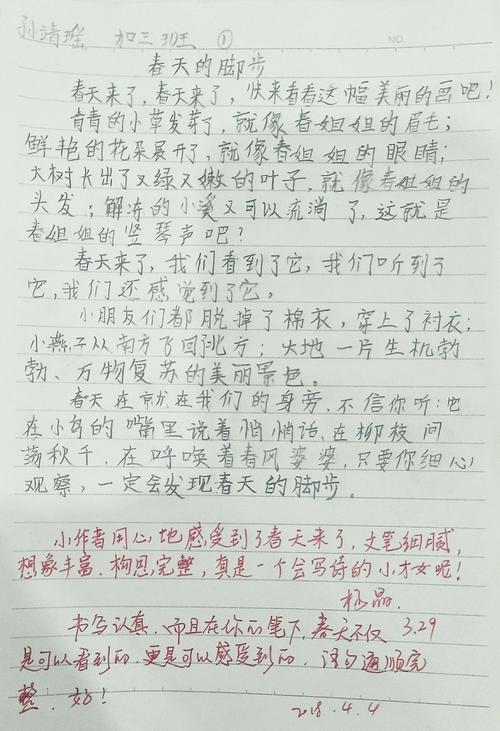 孙靖瑶 加三班 ①
NO.
春天的脚步
春天来了,春天来了,快来看看这幅美丽的画吧!
青青的小草发芽了,就像春姐姐的眉毛;
鲜艳的花朵展开了,就像春姐姐的眼睛;
大树长出了又绿又嫩的叶子,就像春姐姐的
头发;解冻的小溪又可以流淌了,这就是
春姐姐的竖琴声吧?
春天来了,我们看到了它,我们听到了
它,我们还感觉到了它。
小朋友们都脱掉了棉衣,穿上了衬衣;
小燕子从南方飞回北方;大地一片生机勃
勃、万物复苏的美丽景色。
春天在就在我们的身旁,不信你听:它
在小鸟的嘴里说着悄悄话,在柳枝间
荡秋千,在呼唤着春风婆婆,只要你细心
观察,一定会发现春天的脚步。
小作者用心地感受到了春天来了,文笔细腻,
想象丰富,构思完整,真是一个会写诗的小才女呢!
杨晶.
书写认真,而且在你的笔下,春天不仅 3.29
是可以看到的,更是可以感受到的,语句通顺完
整,好!
2018.4.4